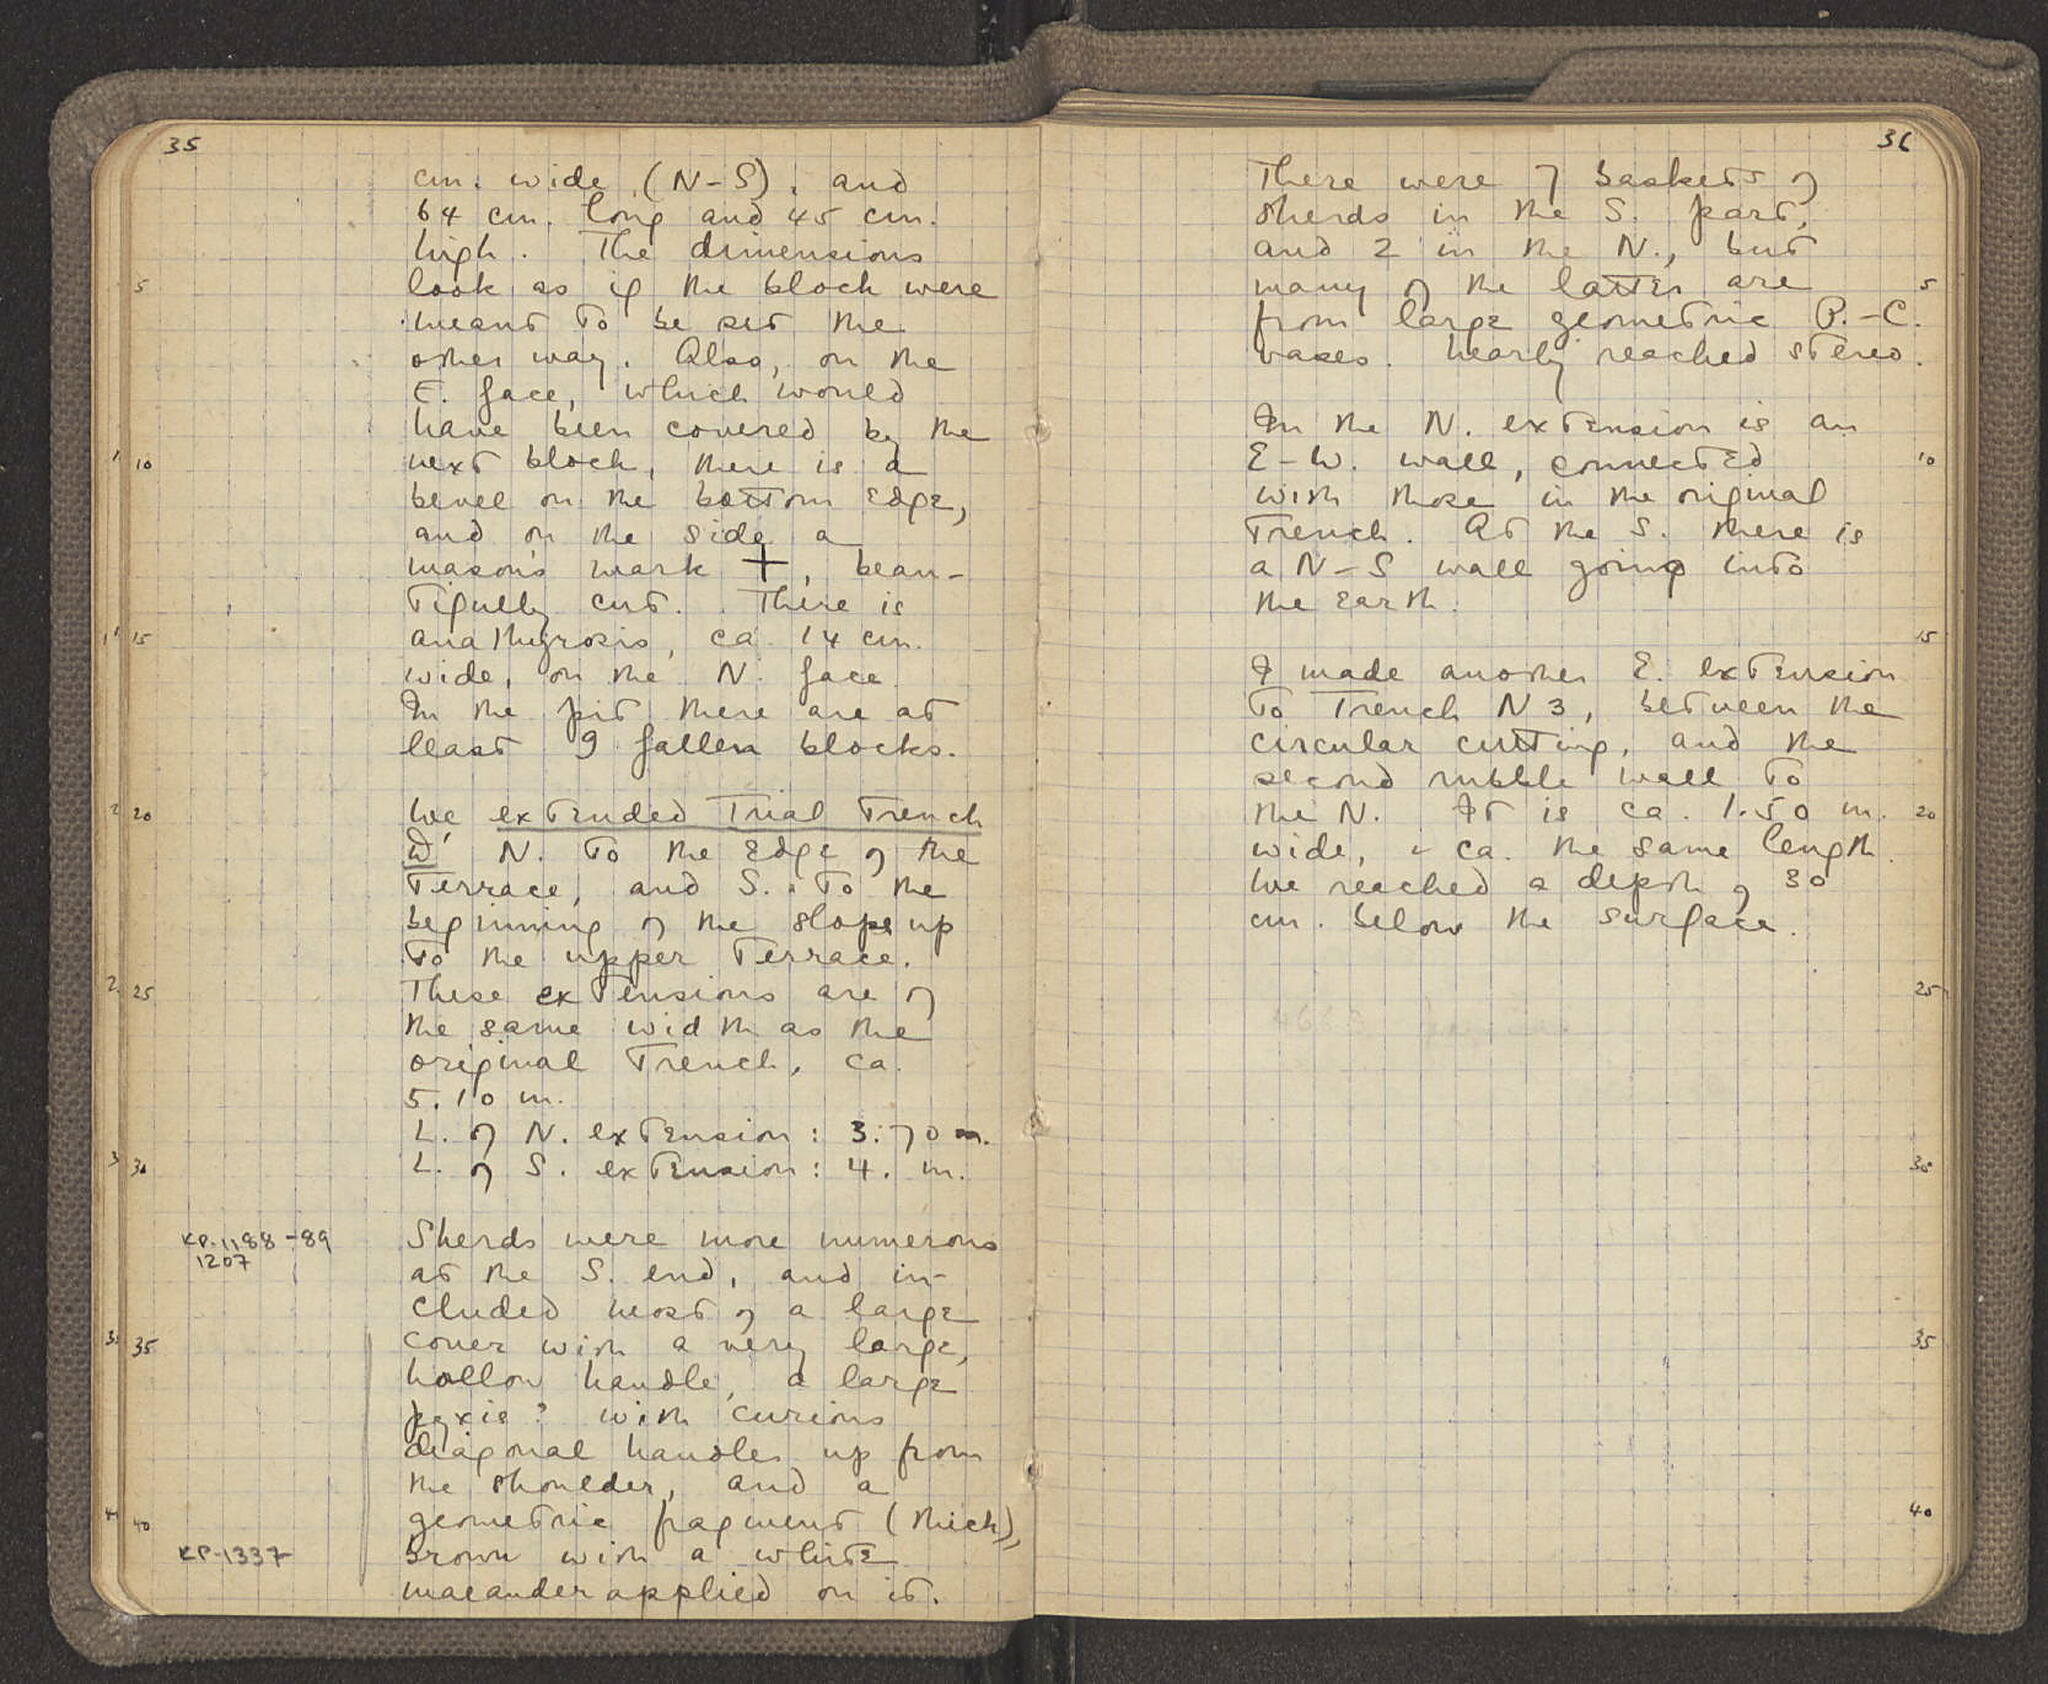 35
cm. wide (N-S), and
64 cm. long and 45 cm.
high. The dimensions
5 look as if the block were
meant to be set the
other way. Also, on the
E. face, which would
have been covered by the
10 next block, there is a
bevel on the bottom edge,
and on the side a
mason's mark +, beau-
tifully cut. There is
15 anathyrosis, ca. 14 cm.
wide, on the N. face.
In the pit there are at
least 9 fallen blocks.
20 We extended Trial Trench
W N. to the edge of the
Terrace, and S. to the
beginning of the slope up
to the upper Terrace.
25 These extensions are of
the same width as the
original Trench, ca.
5.10 m.
L. of N. extension: 3.70 m.
30 L. of S. extension: 4. m.
KP-1188-89 Sherds were more numerous
1207 at the S. end, and in-
cluded most of a large
35 cover with a very large,
hollow handle, a large
pyxis? with curious
diagonal handles up from
the shoulder, and a
40 geometric fragment (thick),
KP-1337 brown with a white
maeander applied on it.
36
There were 7 baskets of
sherds in the S. part,
and 2 in the N., but
many of the latter are 5
from large geometric P.-C.
vases. Nearly reached stereo.
In the N. extension is an
E-W. wall, connected 10
with those in the original
Trench. At the S. there is
a N-S wall going into
the earth.
15
I made another E. extension
to Trench N3, between the
circular cutting, and the
second rubble wall to
the N. It is ca. 1.50 m. 20
wide, & ca. the same length.
We reached a depth of 30
cm. below the surface.
25
30
35
40